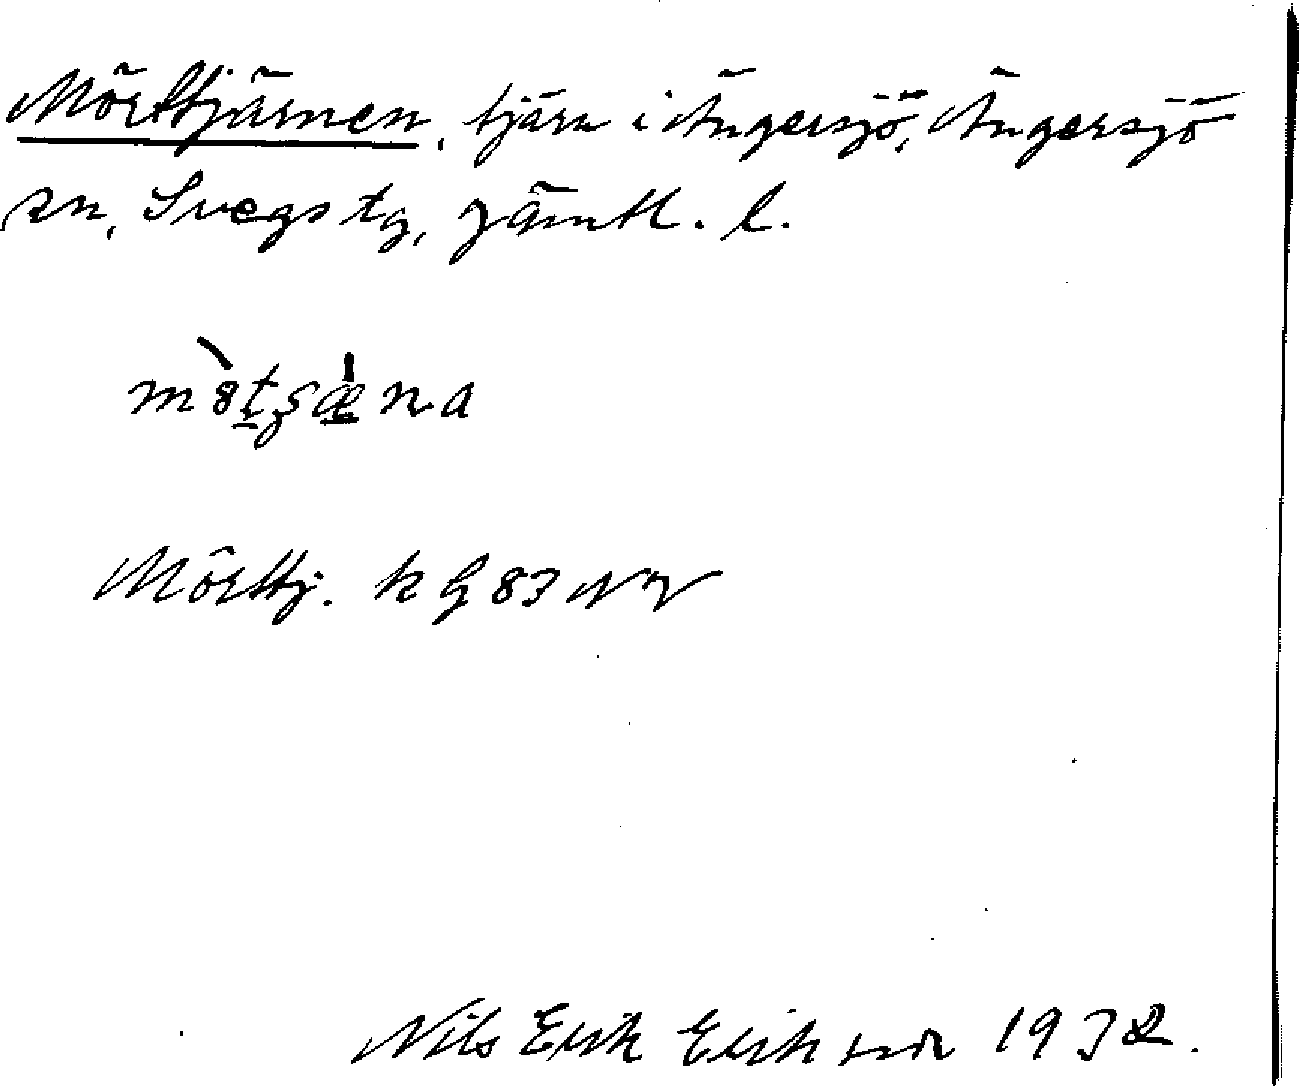 Mörttjärnen, tjärn i Ängersjö, Ängersjö
sn, Svegs tg, Jämtl. l.
Mörttj. k G 83 NV
Nils Erik Eriksson 1932.